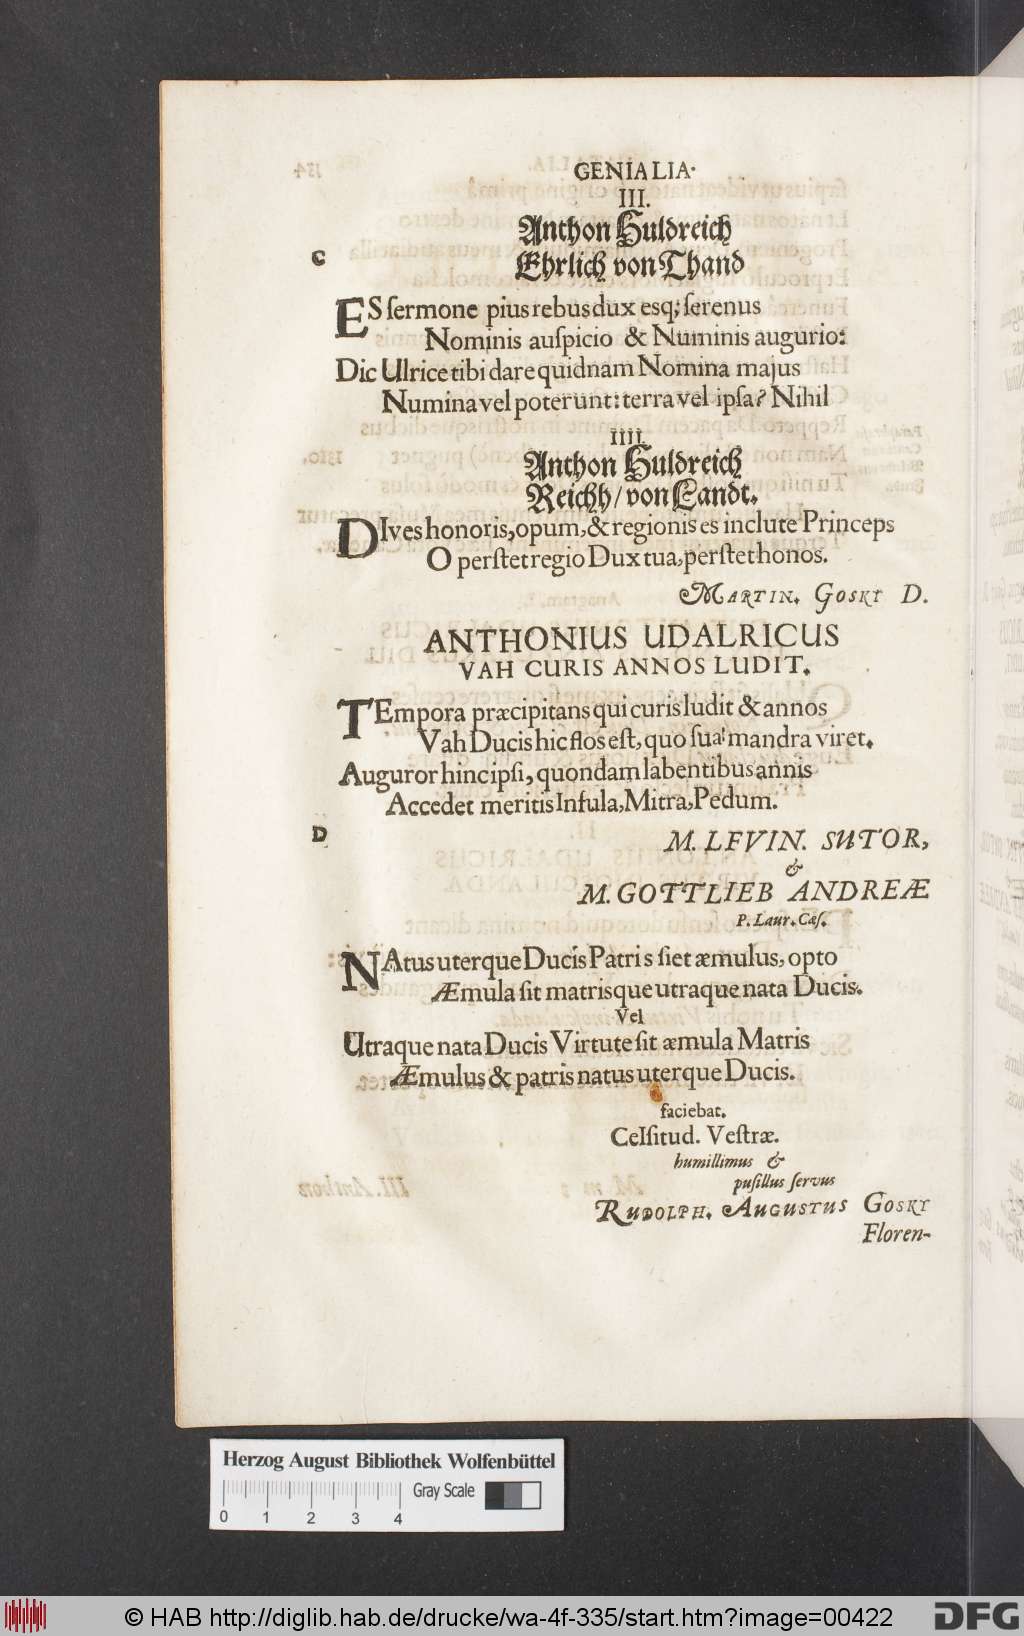 GENIALIA.
III.
Anthon Huldreich
Ehrlich von Thand
C
ES ſermone pius rebus dux esq; ſerenus
Nominis auſpicio & Numinis augurio:
Dic Ulrice tibi dare quidnam Nomina majus
Numina vel poterunt: terra vel ipſa? Nihil
IIII.
Anthon Huldreich
Reichh / von Landt.
DIves honoris, opum, & regionis es inclute Princeps
O perſtet regio Dux tua, perſtet honos.
MARTIN. GOSKY D.
ANTHONIUS UDALRICUS
VAH CURIS ANNOS LUDIT.
TEmpora præcipitans qui curis ludit & annos
Vah Ducis hic flos eſt, quo ſua mandra viret.
Auguror hinc ipſi, quondam labentibus annis
Accedet meritis Inſula, Mitra, Pedum.
D
M. LEVIN. SUTOR,
&
M. GOTTLIEB ANDREÆ
P. Laur. Cæſ.
NAtus uterque Ducis Patris fiet æmulus, opto
Æmula ſit matrisque utraque nata Ducis.
Vel
Utraque nata Ducis Virtute ſit æmula Matris
Æmulus & patris natus uterque Ducis.
faciebat.
Celſitud. Veſtræ.
humillimus &
puſillus ſervus
RUDOLPH. AUGUSTUS GOSKY
Floren-
Herzog August Bibliothek Wolfenbüttel
Gray Scale
0 1 2 3 4
© HAB http://diglib.hab.de/drucke/wa-4f-335/start.htm?image=00422
DFG